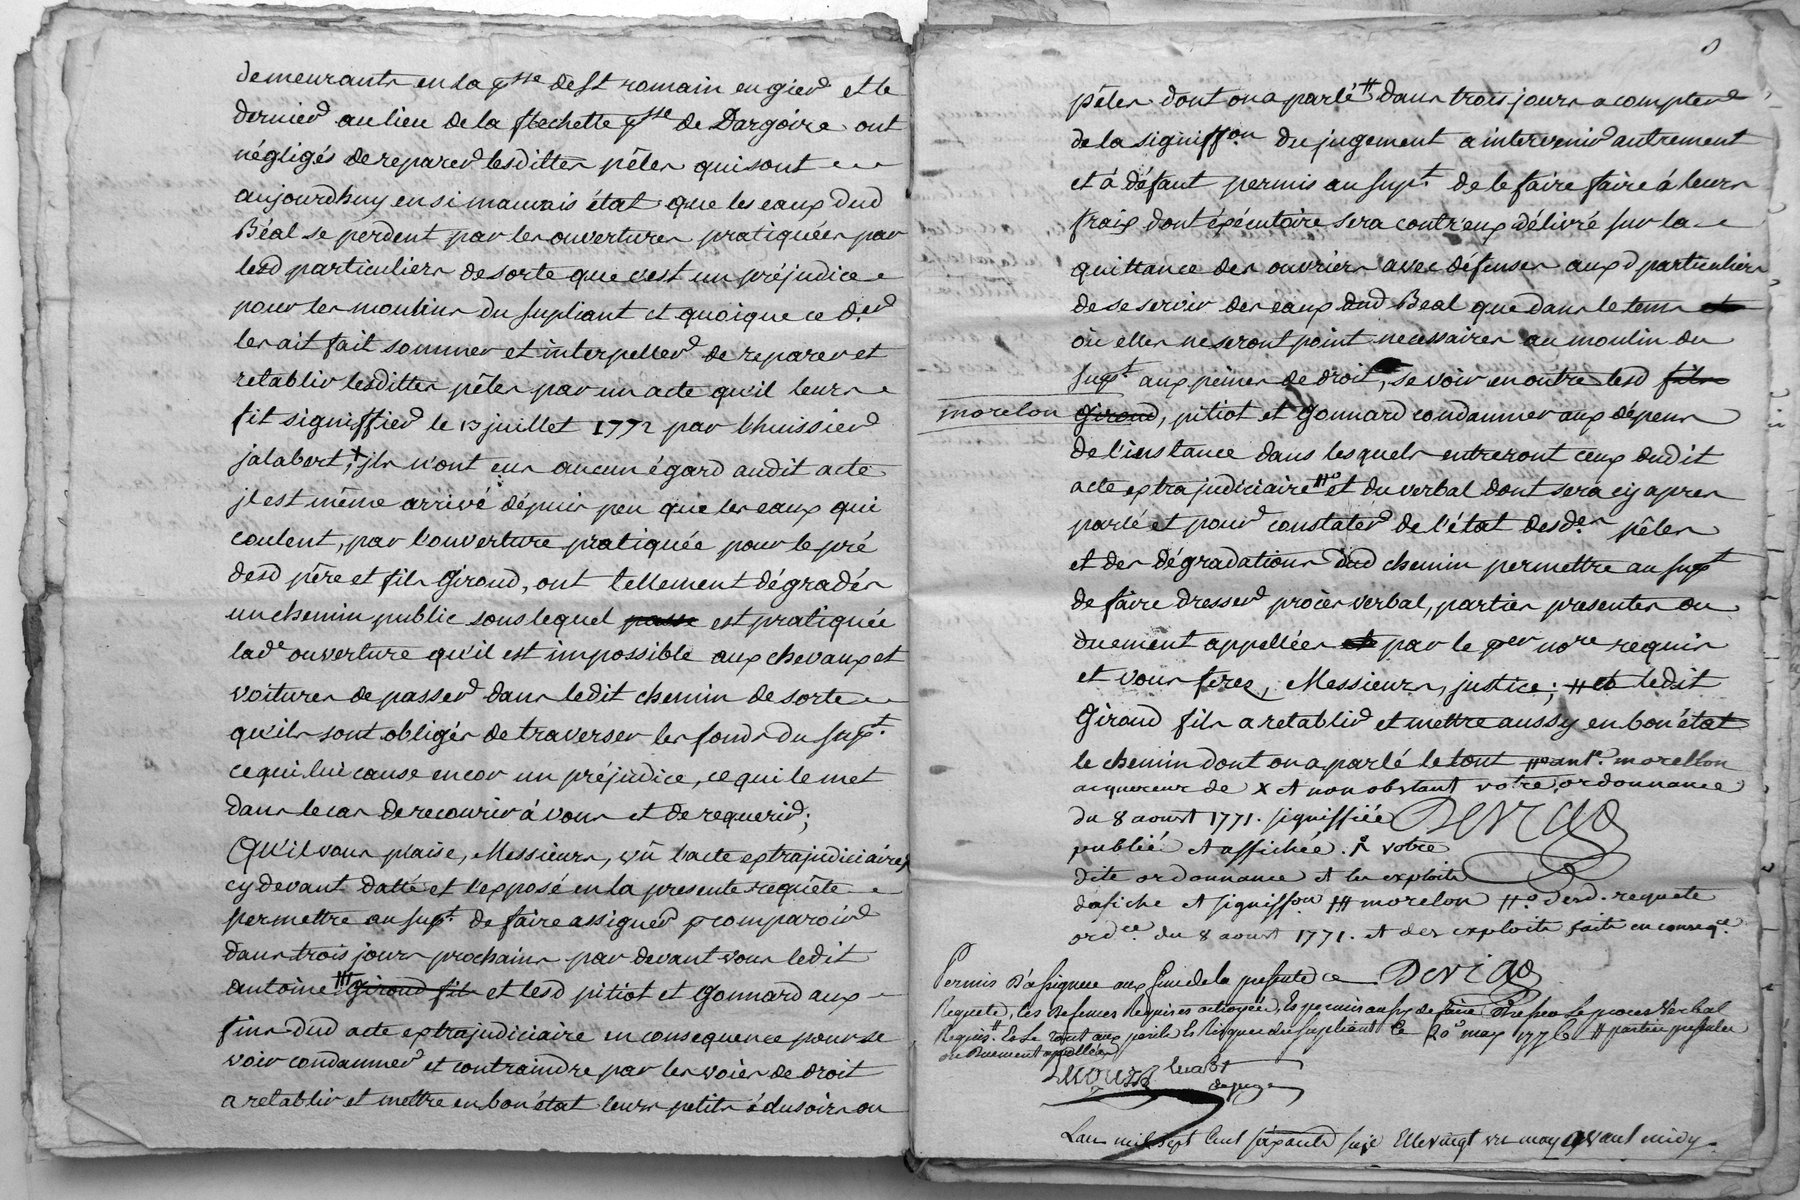 demeurants en la psse de st romain en gier et le
dernier au lieu de la flechette psse de Dargoire ont
négligés de reparer lesdittes pêles qui sont
aujourdhuy en si mauvais état que les eaux dud
Béal se perdent par les ouvertures pratiquées par
lesd particuliers de sorte que c'est un préjudice
pour les moulins du supliant et quoique ce der
les ait fait sommer et interpeller de reparer et
retablir lesdittes pêles par un acte qu'il leurs
fit signiffier le 13 juillet 1772 par l'huissier
jalabert, x jls n'ont eus aucun égard audit acte
jl est même arrivé dépuis peu que les eaux qui
coulent, par l'ouverture pratiquée pour le pré
desd père et fils Giroud, ont tellement dégradés
un chemin public sous lequel passe est pratiquée
lade ouverture qu'il est impossible aux chevaux et
voitures de passer dans ledit chemin de sorte
qu'ils sont obligés de traverser les fonds du supt.
ce qui lui cause encor un préjudice, ce qui le met
dans le cas de recourir à vous et de requerir;
Qu'il vous plaise, Messieurs, vû l'acte extrajudiciaire,
cy devant datté et l'exposé en la presente requête
permettre au supt. de faire assigner p comparoir
dans trois jours prochains par devant vous ledit
antoine ||| Giroud fils et lesd pitiot et Gonnard aux
fins dud acte extrajudiciaire en consequence pour se
voir condamner et contraindre par les voies de droit
a retablir et mettre en bon état leurs petits édusoirs ou
pêles dont on a parlé # dans trois jours a compter
de la signiffon du jugement a intervenir autrement
et à défaut permis au supt. de le faire faire à leurs
fraix dont éxécutoire sera contr'eux délivré sur la
quittance des ouvriers avec défenses auxd particuliers
de se servir des eaux dud Beal que dans le tems et
où elles ne seront point necessaires au moulin du
supt. aux peines de droit, se voir en outre lesd fils
morelon Giroud, pitiot et Gonnard condamner aux dépens
de l'instance dans lesquels entreront ceux dudit
acte extrajudiciaire ##o et du verbal dont sera cy apres
parlé et pour constater de l'état desdes pêles
et des dégradations dud chemin permettre au supt
de faire dresser procès verbal, parties presentes ou
duement appellées et par le per nore requis
et vous ferez, Messieurs, justice; # et ledit
Giroud fils a retablir et mettre aussy en bon état
le chemin dont on a parlé le tout ant. morellon
acquereur de x et nonobstant votre ordonnance
du 8 aoust 1771. signiffiée Devigo
publiée et affichée. votre
dite ordonnance et les exploits
dafiche et signiffon ||| morelon ##o desd. requete
ordce du 8 aoust 1771. et des exploits faits en conseqce.
Permis d'assigner aux fins de la presente
Requete, les defenses Requises octroyées, Et permis aussy de faire dresser le proces verbal
Requis # Et Le tout aux perils et Risques du supliant Ce 20e may 1776 # parties presentes
ou Duement appellées
Lan mil sept Cent soixante seize Et le vingt un may avant midy